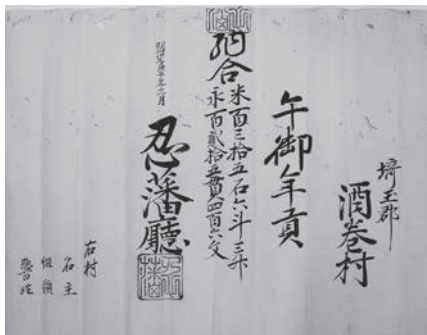 埼玉郡
酒巻村
午御年貢
納合
米百三拾五石六斗三升
永百貳拾五貫四百六文
明治三庚午年十二月
忍藩廳
右村
名主
組頭
惣百姓